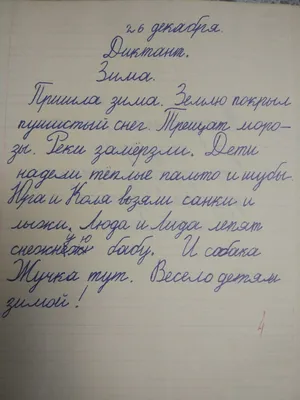 26 декабря.
Диктант.
Зима.
Пришла зима. Землю покрыл
пушистый снег. Трещат моро-
зы. Реки замёрзли. Дети
надели тёплые пальто и шубы.
Юра и Коля взяли санки и
лыжи. Люда и Лида лепят
снежную бабу. И собака
Жучка тут. Весело детям
зимой!
4